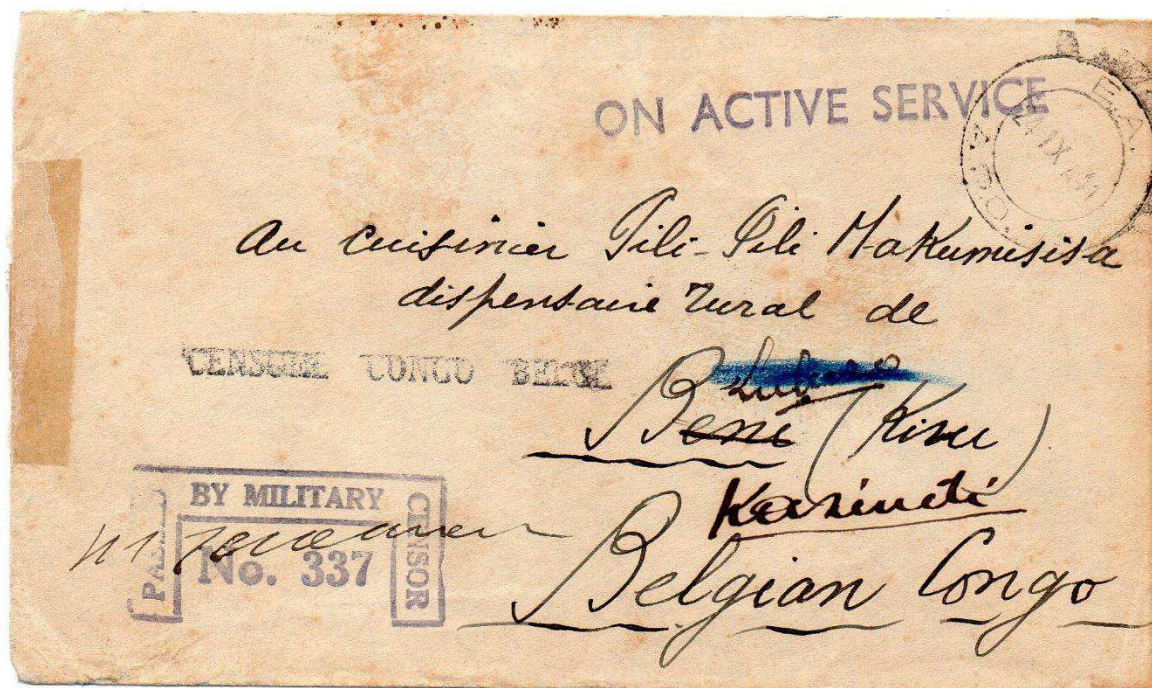 ON ACTIVE SERVICE
E.A.
A.P.O.
24 IX 41
Au cuisinier Pili-Pili Makumisisa
dispensaire rural de
CENSURE CONGO BELGE
Lubero
Beni (Kivu)
Kasindi
Belgian Congo
PASSED BY MILITARY CENSOR
No. 337